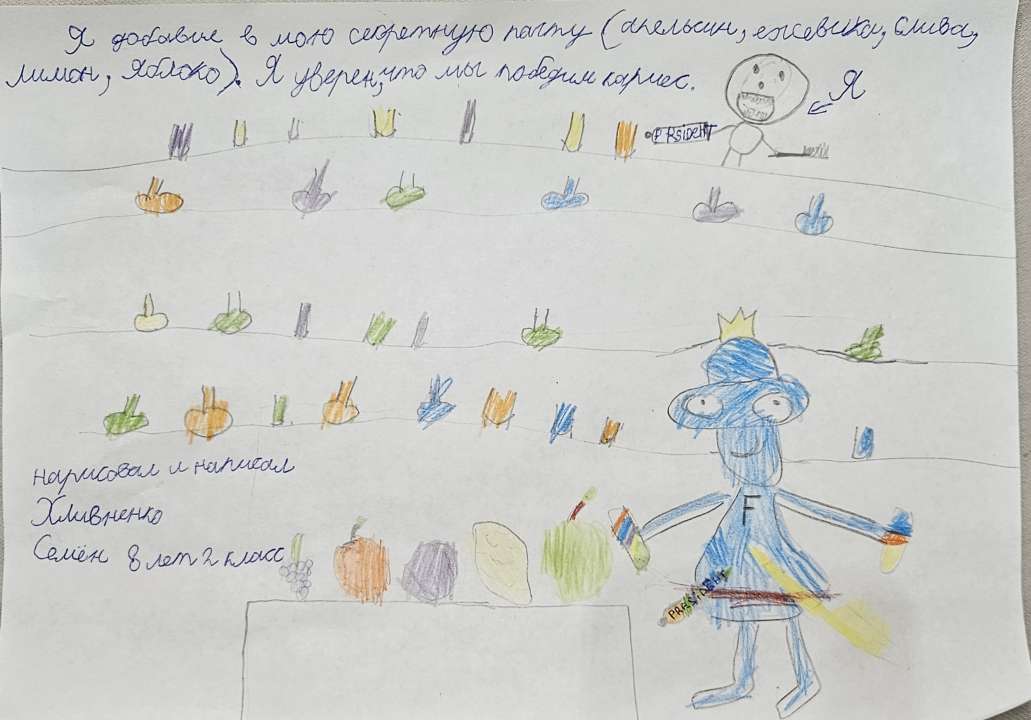 Я добавил в мою секретную пасту (апельсин, ежевика, слива,
лимон, яблоко). Я уверен, что мы победим кариес.
Я
PRSIDENT
нарисовал и написал
Хливненко
Семён 8 лет 2 класс
F
PRESIDENT